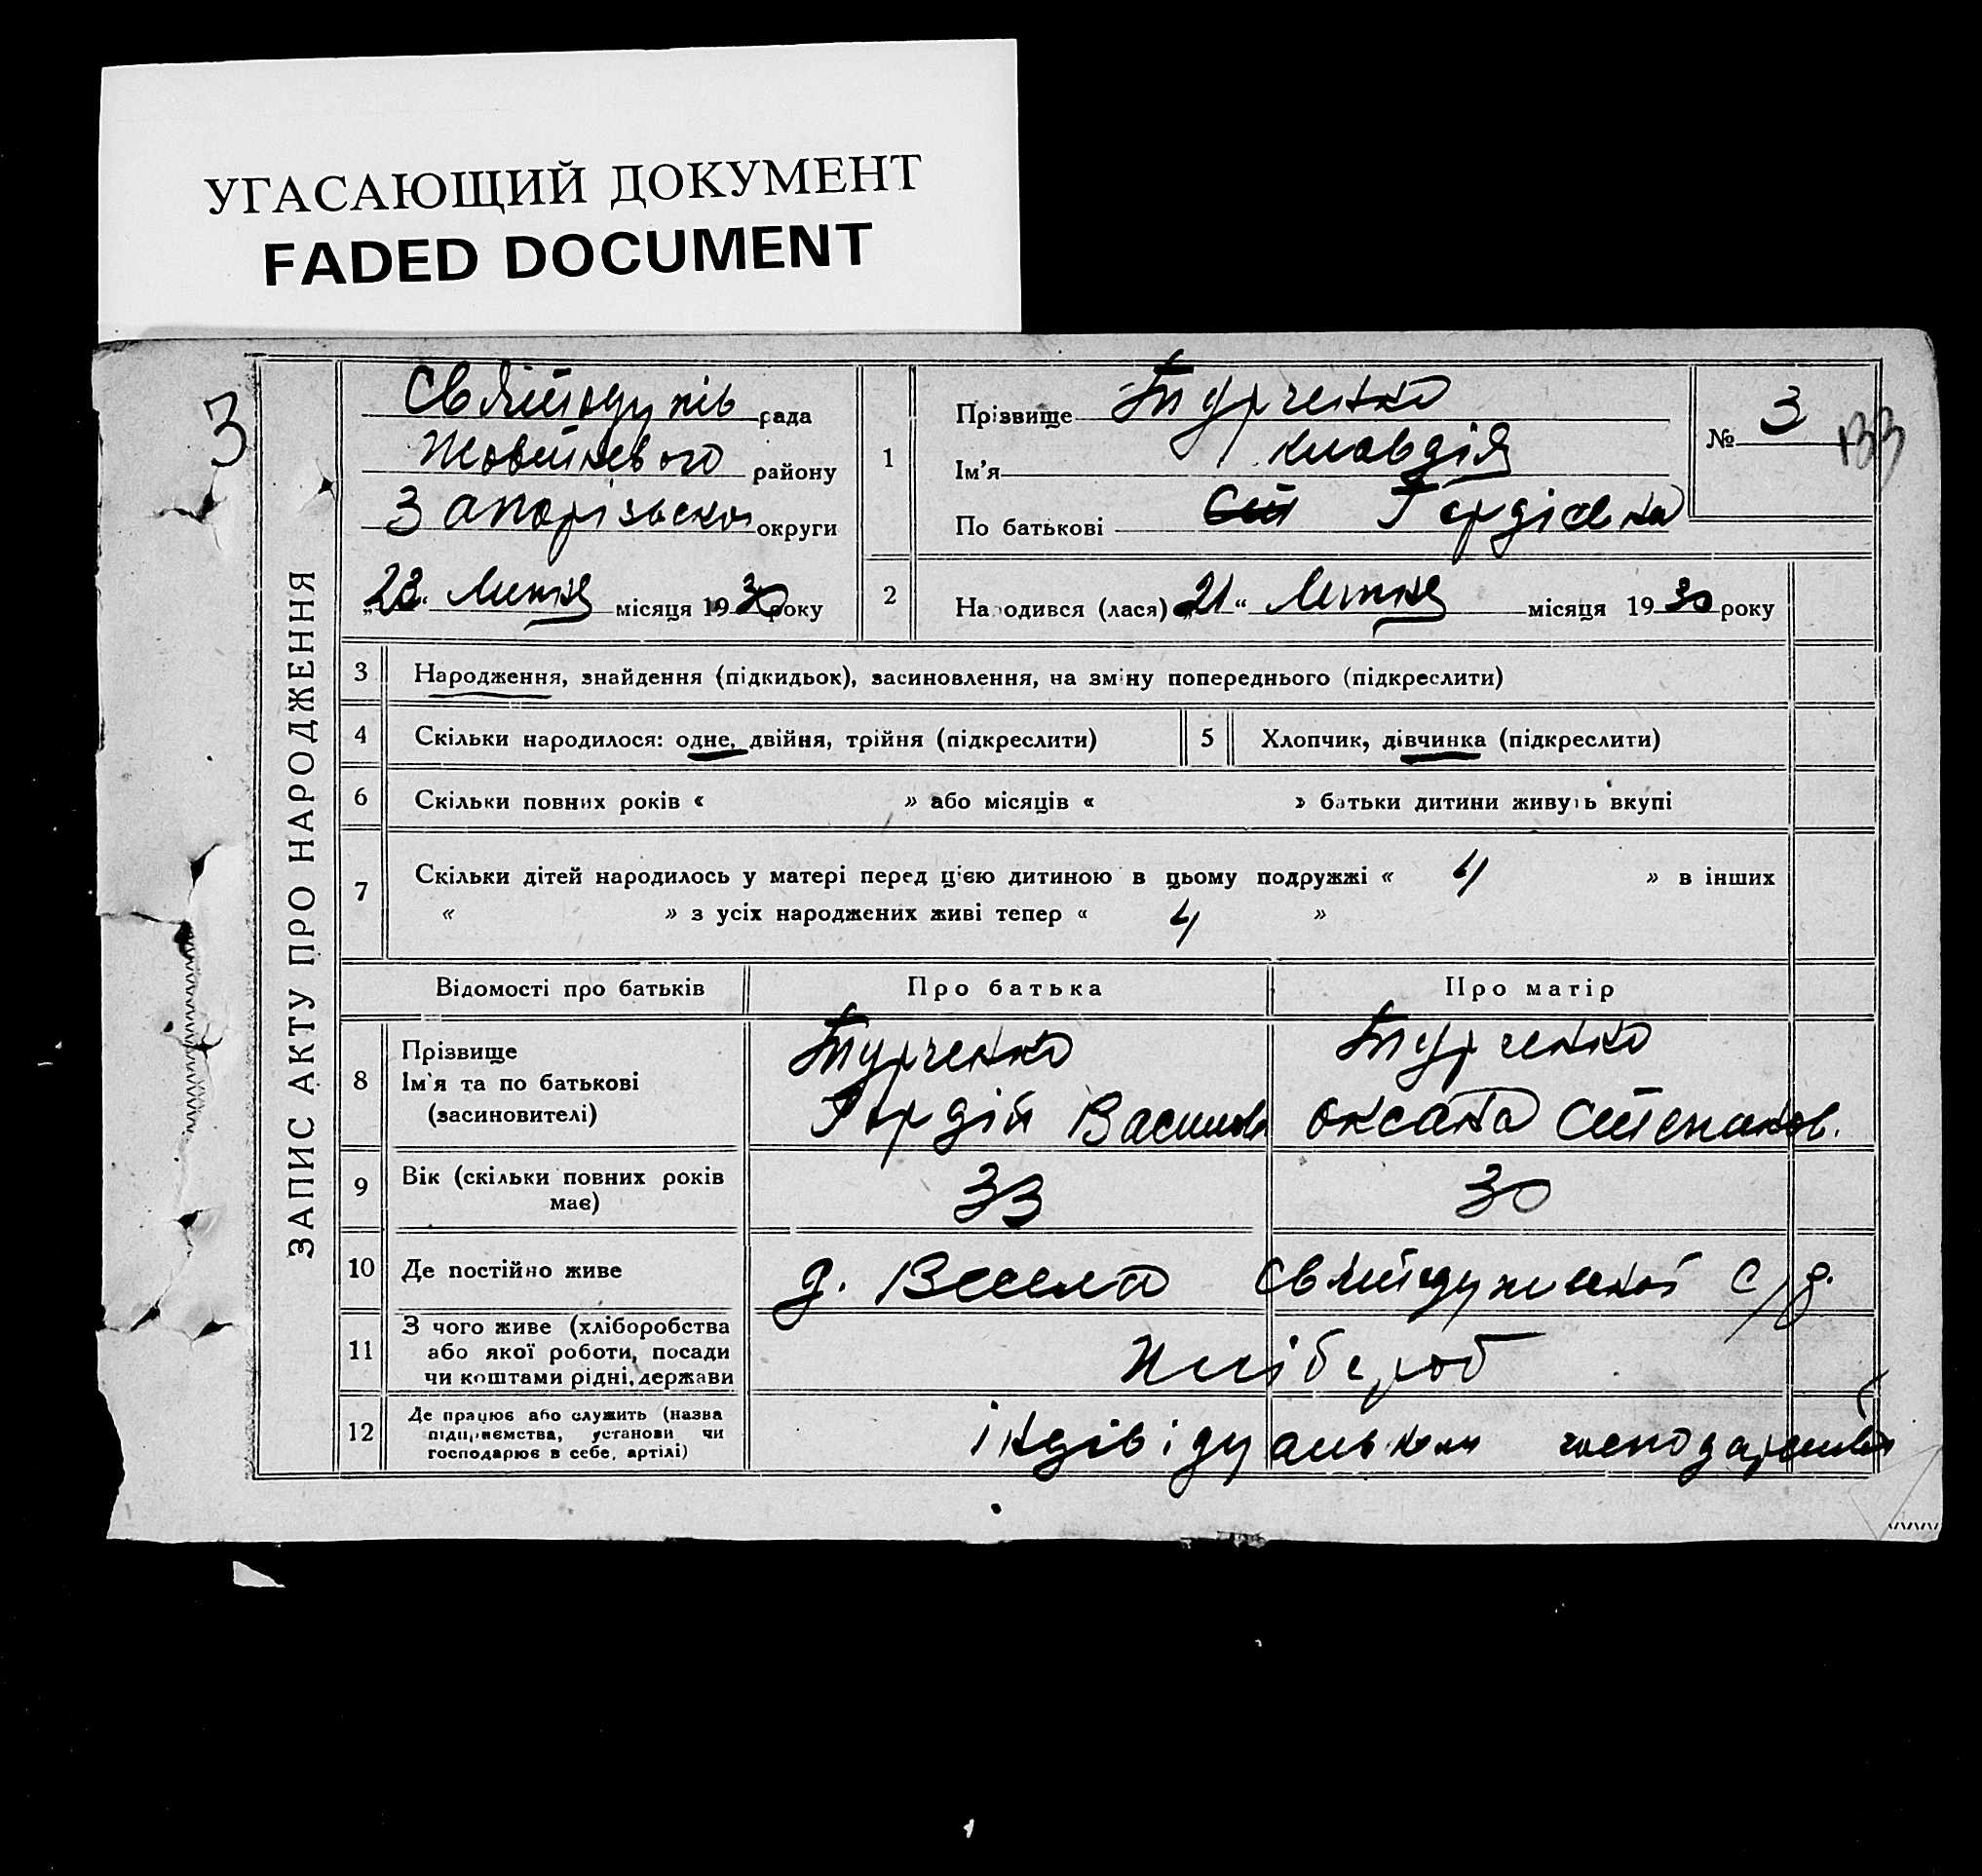 УГАСАЮЩИЙ ДОКУМЕНТ
FADED DOCUMENT
3
ЗАПИС АКТУ ПРО НАРОДЖЕННЯ
рада
Жовтневого району
Запорізької округи
„23“ Лютня місяця 1930 року
1
Прізвище Турченко
Ім'я Клавдія
По батькові Гордієвна
№ 3
133
2
Народився (лася) „21“ Лютня місяця 1930 року
3 Народження, знайдення (підкидьок), засиновлення, на зміну попереднього (підкреслити)
4 Скільки народилося: одне, двійня, трійня (підкреслити) 5 Хлопчик, дівчинка (підкреслити)
6 Скільки повних років « » або місяців « » батьки дитини живуть вкупі
7 Скільки дітей народилось у матері перед цією дитиною в цьому подружжі « 4 » в інших
« » з усіх народжених живі тепер « 4 »
Відомості про батьків Про батька Про матір
8 Прізвище Турченко Турченко
Ім'я та по батькові
(засновителі) Гордій Оксана Степанов.
9 Вік (скільки повних років має) 33 30
10 Де постійно живе д. Весела с/р.
11 З чого живе (хліборобства
або якої роботи, посади
чи коштами рідні, держави
хлібероб
12 Де працює або служить (назва
підприємства, установи чи
господарює в себе, артілі)